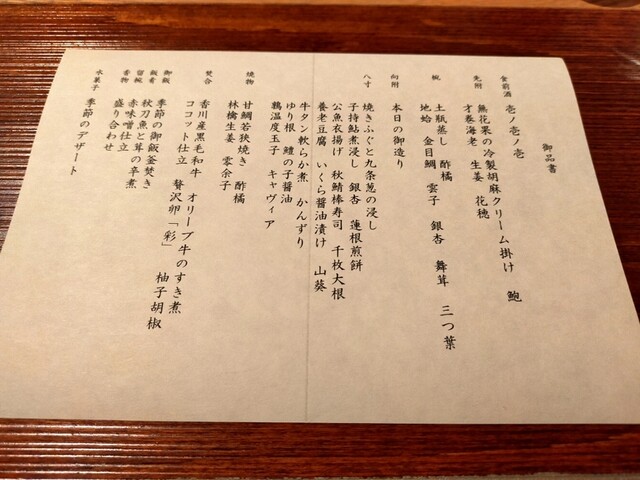 御品書
食前酒 壱ノ壱ノ壱
先附 無花果の冷製胡麻クリーム掛け 鮑
才巻海老 生姜 花穂
椀 土瓶蒸し 酢橘
地蛤 金目鯛 雲子 銀杏 舞茸 三つ葉
向附 本日の御造り
八寸 焼きふぐと九条葱の浸し
子持鮎煮浸し 銀杏 蓮根煎餅
公魚衣揚げ 秋鯖棒寿司 千枚大根
養老豆腐 いくら醤油漬け 山葵
牛タン軟らか煮 かんずり
ゆり根 鱧の子醤油
鶉温度玉子 キャヴィア
焼物 甘鯛若狭焼き 酢橘
林檎生姜 零余子
焚合 香川産黒毛和牛 オリーブ牛のすき煮
ココット仕立 贅沢卵「彩」 柚子胡椒
御飯 季節の御飯釜焚き
飯肴 秋刀魚と茸の辛煮
留椀 赤味噌仕立
香物 盛り合わせ
水菓子 季節のデザート